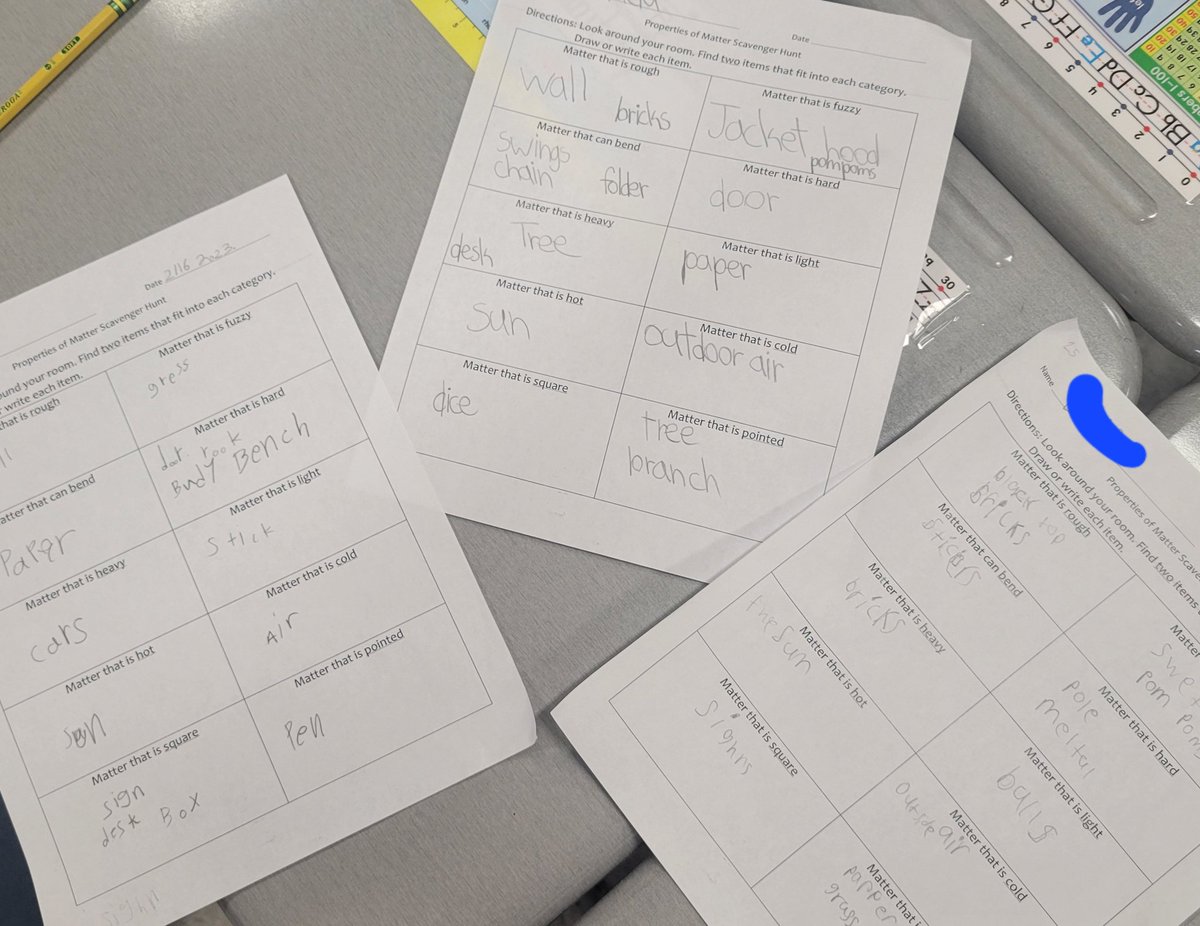 Date 2/16 2023.
Properties of Matter Scavenger Hunt
around your room. Find two items that fit into each category.
or write each item.
that is rough
Matter that is fuzzy
gress
Matter that can bend
Paper
Matter that is hard
doot. rook
Budy Bench
Matter that is heavy
cars
Matter that is light
stick
Matter that is hot
sun
Matter that is cold
Air
Matter that is square
sign
desk Box
Matter that is pointed
Pen
Date
Properties of Matter Scavenger Hunt
Directions: Look around your room. Find two items that fit into each category.
Draw or write each item.
Matter that is rough
wall
bricks
Matter that is fuzzy
Jacket hood
pompoms
Matter that can bend
swings
chain folder
Matter that is hard
door
Matter that is heavy
Tree
desk
Matter that is light
paper
Matter that is hot
sun
Matter that is cold
outdoor air
Matter that is square
dice
Matter that is pointed
tree
branch
25
Name
Properties of Matter Scave
Directions: Look around your room. Find two items
Draw or write each item.
Matter that is rough
black top
bricks
Matter
swe
Pom Pom
Matter that can bend
sticks
Matter that is hard
pole
meltal
Matter that is heavy
bricks
Matter that is light
balls
Matter that is hot
the sun
Matter that is cold
outside air
Matter that is square
sighns
Matter that i
papper
grass
Bb Cc Dd Ee Ff G
bers 1-100
0 1 2 3 4 5 6 7 8
30